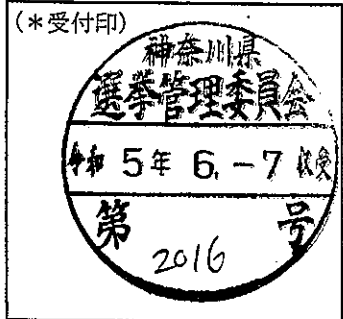 (*受付印)
神奈川県
選挙管理委員会
令和 5年 6.-7 収受
第 号
2016